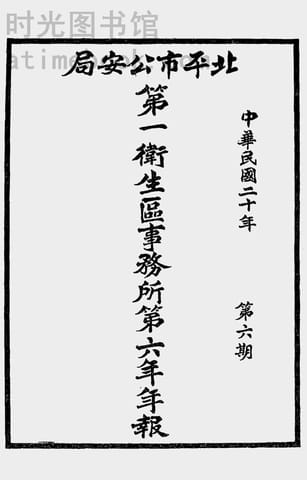 时光图书馆
北平市公安局
中華民國二十年
第六期
第一衛生區事務所第六年年報